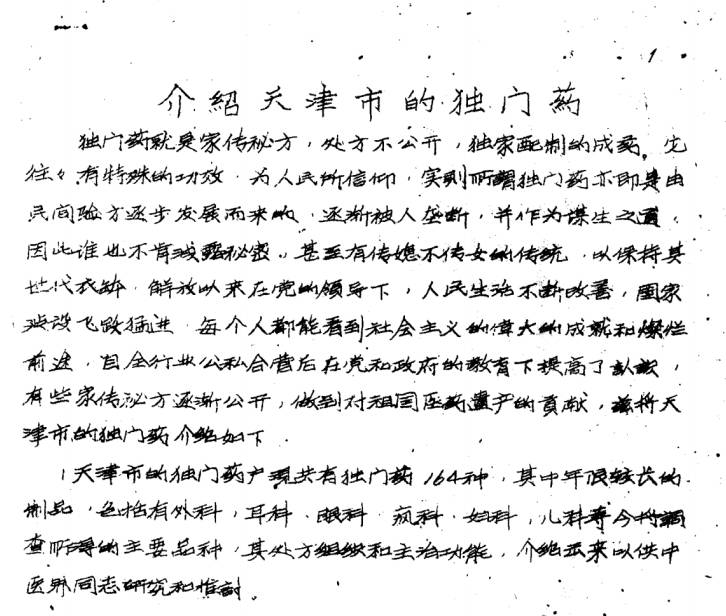 1
介绍天津市的独门药
独门药就是家传秘方，处方不公开，独家配制的成药。它
往々有特殊的功效，为人民所信仰，实则所谓独门药亦即是由
民间验方逐步发展而来的，逐渐被人垄断，并作为谋生之道，
因此谁也不肯泄露秘密，甚至有传媳不传女的传统，以保持其
世代衣钵，解放以来在党的领导下，人民生活不断改善，国家
建设飞跃猛进，每个人都能看到社会主义的伟大的成就和灿烂
前途，自全行业公私合营后在党和政府的教育下提高了认识，
有些家传秘方逐渐公开，做到对祖国医药遗产的贡献，兹将天
津市的独门药介绍如下．
1天津市的独门药产现共有独门药164种，其中年很较长的
制品，包括有外科，耳科，眼科，疯科，妇科，儿科等今将调
查所得的主要品种，其处方组织和主治功能，介绍出来以供中
医界同志研究和惟討．